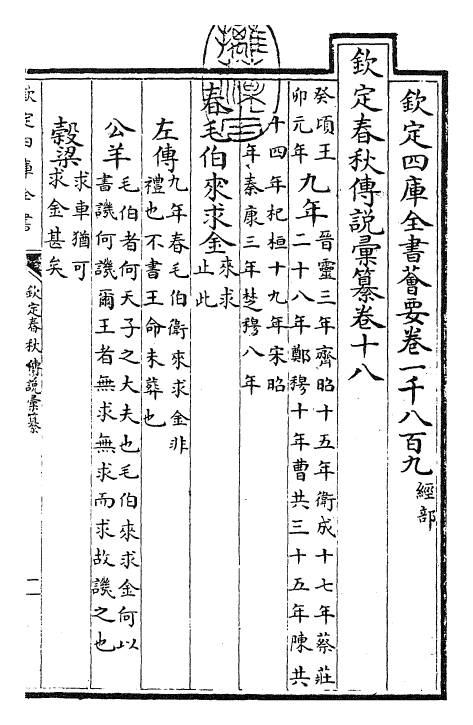 欽定四庫全書薈要卷一千八百九 經部
欽定春秋傳說彙纂卷十八
癸頃王
卯元年
九年
晉靈三年齊昭十五年衛成十七年蔡莊
二十八年鄭穆十年曹共三十五年陳共
十四年杞桓十九年宋昭
年秦康三年楚穆八年
春毛伯來求金
來求
止此
左傳
九年春毛伯衛來求金非
禮也不書王命未葬也
公羊
毛伯者何天子之大夫也毛伯來求金何以
書譏何譏爾王者無求無求而求故譏之也
穀梁
求車猶可
求金甚矣
欽定四庫全書
欽定春秋傳說彙纂
一